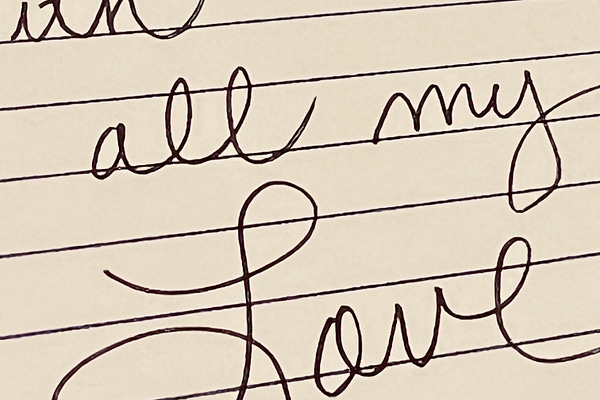 with
all my
Love